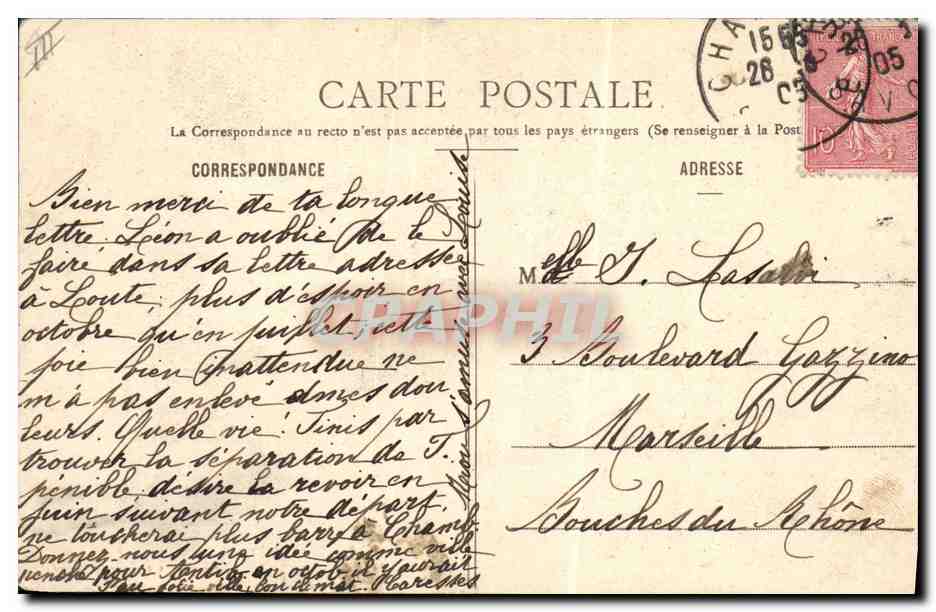 III
CARTE POSTALE
La Correspondance au recto n'est pas acceptée par tous les pays étrangers (Se renseigner à la Post
CORRESPONDANCE
Bien merci de ta longue
lettre. Léon a oublié de le
faire dans sa lettre adressée
à Loute, plus d'espoir en
octobre qu'en juillet, cette
joie bien inattendue ne
m'à pas enlevé d mes dou
leurs. Quelle vie! Finis par
trouver la séparation de T.
pénible, désire la revoir en
juin suivant notre départ.
ne toucherai plus barre à Chamb.
Donnez-nous une idée comme ville
pour en octob il y aurait
Caresses
s'amuse avec Louise
ADRESSE
Melle J. Lasalvi
3 Boulevard Gazzino
Marseille
Bouches du Rhône
CHA
15
26
05
05
10
CPAPHIL